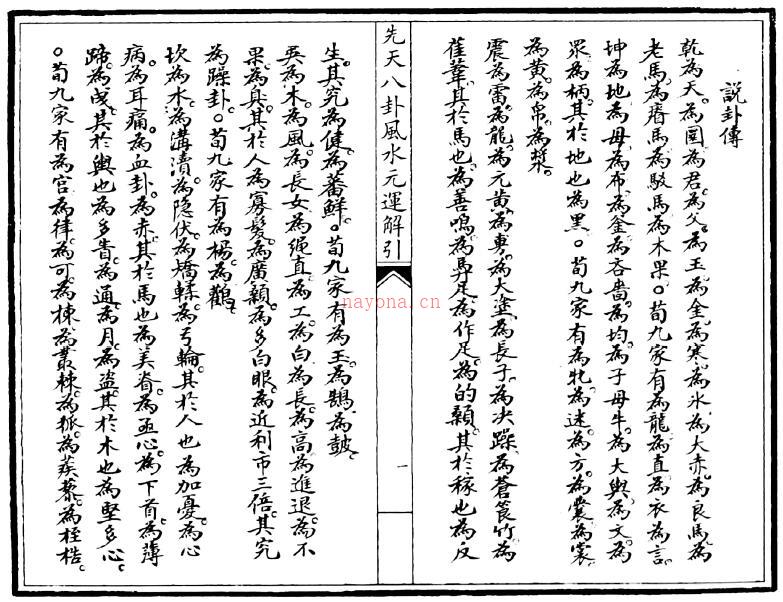 說卦傳
乾為天。為圜。為君。為父。為玉。為金。為寒。為氷。為大赤。為良馬。為
老馬。為瘠馬。為駁馬。為木果。荀九家有為龍。為直。為衣。為言。
坤為地。為母。為布。為釜。為吝嗇。為均。為子母牛。為大輿。為文。為
眾。為柄。其於地也為黑。荀九家有為牝。為迷。為方。為囊。為裳。
為黃。為帛。為漿。
震為雷。為龍。為元黃。為旉。為大塗。為長子。為决躁。為蒼筤竹。為
萑葦。其於馬也。為善鳴。為馵足。為作足。為的顙。其於稼也。為反
先天八卦風水元運解引
一
生。其究為健。為蕃鮮。荀九家有為玉。為鵠。為鼓。
巽為木。為風。為長女。為绳直。為工。為白。為長。為高。為進退。為不
果。為臭。其於人為寡髮。為廣顙。為多白眼。為近利市三倍。其究
為躁卦。荀九家有為楊。為鸛。
坎為水。為溝瀆。為隐伏。為矯輮。為弓輪。其於人也為加憂。為心
病。為耳痛。為血卦。為赤。其於馬也為美脊。為亟心。為下首。為薄
蹄。為曳。其於輿也為多眚。為通。為月。為盜。其於木也為堅多心
。荀九家有為宮。為律。為可。為棟。為叢棘。為狐。為蒺藜。為桎梏。
nayona.cn